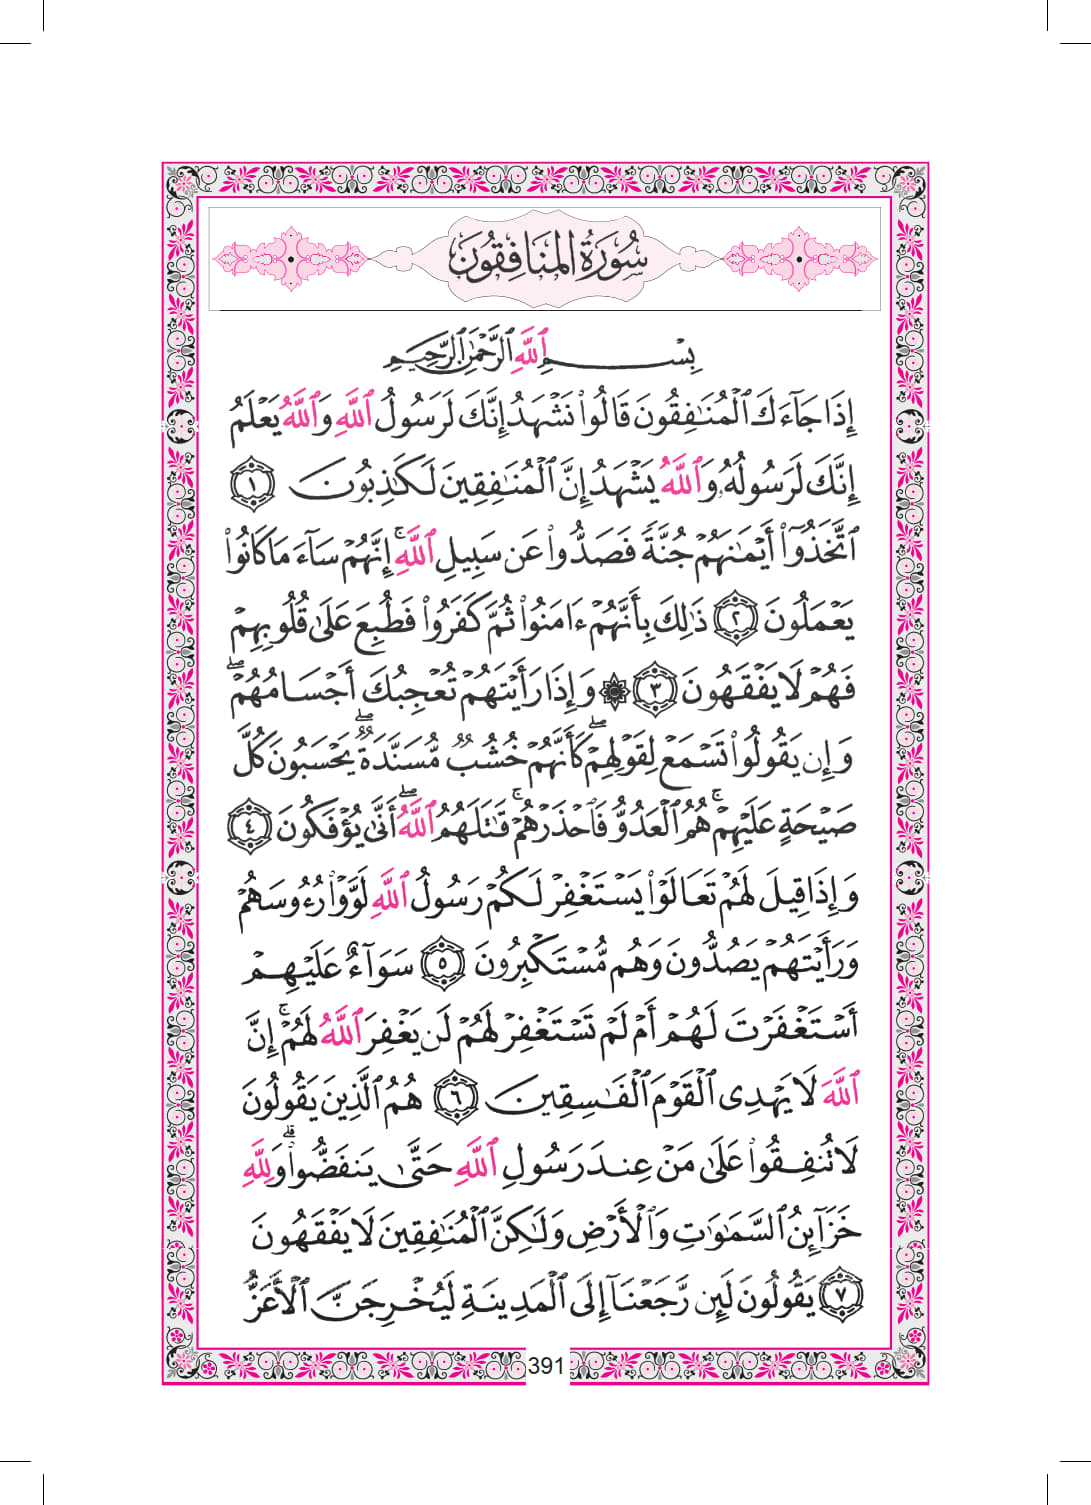 سُورَةُ المُنَافِقُونَ
بِسْمِ ٱللَّهِ ٱلرَّحْمَٰنِ ٱلرَّحِيمِ
إِذَا جَآءَكَ ٱلْمُنَٰفِقُونَ قَالُوا۟ نَشْهَدُ إِنَّكَ لَرَسُولُ ٱللَّهِ وَٱللَّهُ يَعْلَمُ
إِنَّكَ لَرَسُولُهُۥ وَٱللَّهُ يَشْهَدُ إِنَّ ٱلْمُنَٰفِقِينَ لَكَٰذِبُونَ ١
ٱتَّخَذُوٓا۟ أَيْمَٰنَهُمْ جُنَّةً فَصَدُّوا۟ عَن سَبِيلِ ٱللَّهِ ۚ إِنَّهُمْ سَآءَ مَا كَانُوا۟
يَعْمَلُونَ ٢ ذَٰلِكَ بِأَنَّهُمْ ءَامَنُوا۟ ثُمَّ كَفَرُوا۟ فَطُبِعَ عَلَىٰ قُلُوبِهِمْ
فَهُمْ لَا يَفْقَهُونَ ٣ ۞ وَإِذَا رَأَيْتَهُمْ تُعْجِبُكَ أَجْسَامُهُمْ ۖ
وَإِن يَقُولُوا۟ تَسْمَعْ لِقَوْلِهِمْ ۖ كَأَنَّهُمْ خُشُبٌ مُّسَنَّدَةٌ ۖ يَحْسَبُونَ كُلَّ
صَيْحَةٍ عَلَيْهِمْ ۚ هُمُ ٱلْعَدُوُّ فَٱحْذَرْهُمْ ۚ قَٰتَلَهُمُ ٱللَّهُ ۖ أَنَّىٰ يُؤْفَكُونَ ٤
وَإِذَا قِيلَ لَهُمْ تَعَالَوْا۟ يَسْتَغْفِرْ لَكُمْ رَسُولُ ٱللَّهِ لَوَّوْا۟ رُءُوسَهُمْ
وَرَأَيْتَهُمْ يَصُدُّونَ وَهُم مُّسْتَكْبِرُونَ ٥ سَوَآءٌ عَلَيْهِمْ
أَسْتَغْفَرْتَ لَهُمْ أَمْ لَمْ تَسْتَغْفِرْ لَهُمْ لَن يَغْفِرَ ٱللَّهُ لَهُمْ ۚ إِنَّ
ٱللَّهَ لَا يَهْدِى ٱلْقَوْمَ ٱلْفَٰسِقِينَ ٦ هُمُ ٱلَّذِينَ يَقُولُونَ
لَا تُنفِقُوا۟ عَلَىٰ مَنْ عِندَ رَسُولِ ٱللَّهِ حَتَّىٰ يَنفَضُّوا۟ ۗ وَلِلَّهِ
خَزَآئِنُ ٱلسَّمَٰوَٰتِ وَٱلْأَرْضِ وَلَٰكِنَّ ٱلْمُنَٰفِقِينَ لَا يَفْقَهُونَ
٧ يَقُولُونَ لَئِن رَّجَعْنَآ إِلَى ٱلْمَدِينَةِ لَيُخْرِجَنَّ ٱلْأَعَزُّ
391